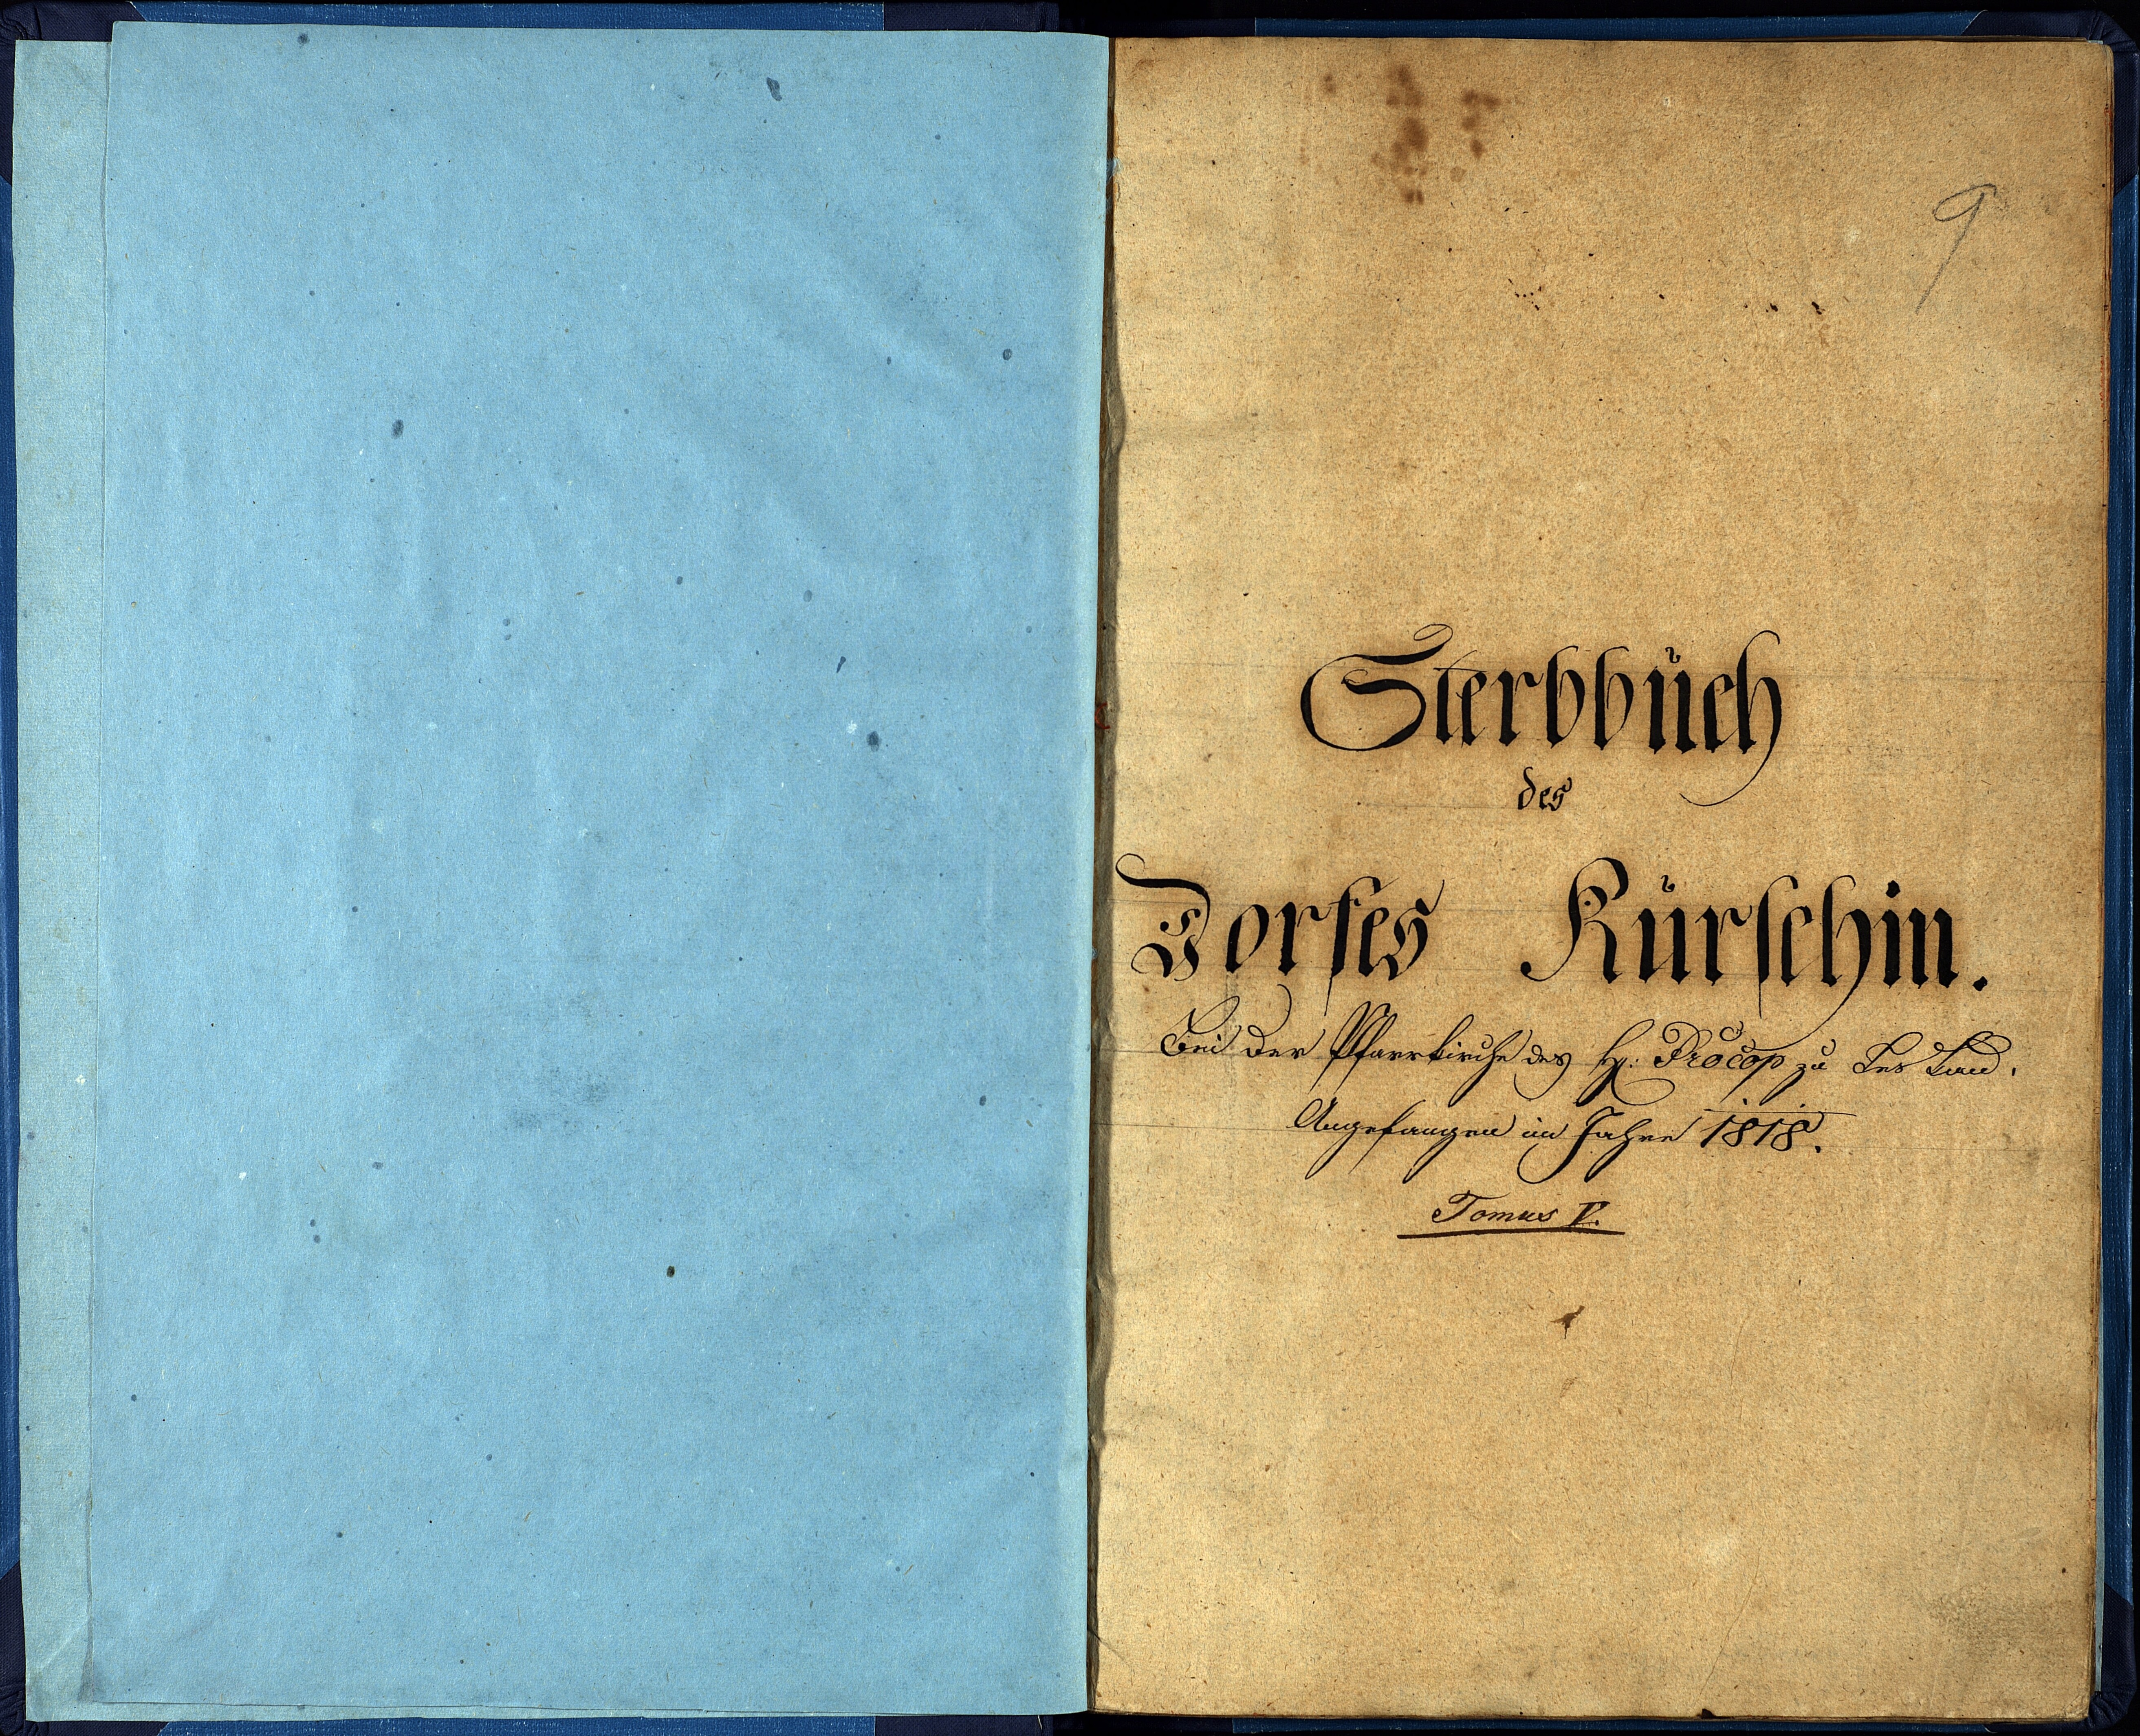 9
Sterbbuch
des
Dorfes Kurschin.
Bei der Pfarrkirche des H: Procop zu
Angefangen im Jahre 1818.
Tomus V.